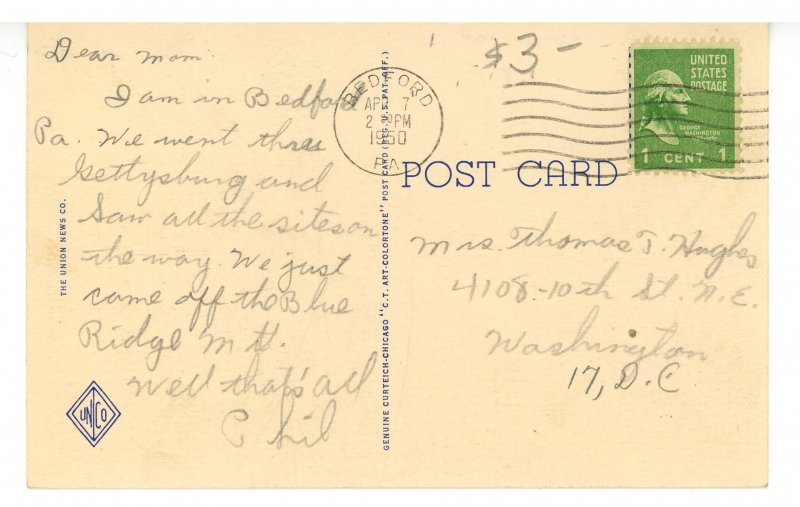 Dear Mom
I am in Bedford
Pa. We went thru
Gettysburg and
Saw all the sites on
the way. We just
came off the Blue
Ridge Mt.
Well that's all
Phil
THE UNION NEWS CO.
UNCO
GENUINE CURTEICH-CHICAGO "C.T. ART-COLORTONE" POST CARD (REG. U.S. PAT. OFF.)
$3-
BEDFORD
APR 7
2 PM
1950
PA.
UNITED
STATES
POSTAGE
GEORGE
WASHINGTON
1 CENT 1
POST CARD
Mrs. Thomas J. Hughes
4108-10th St. N.E.
Washington
17, D.C